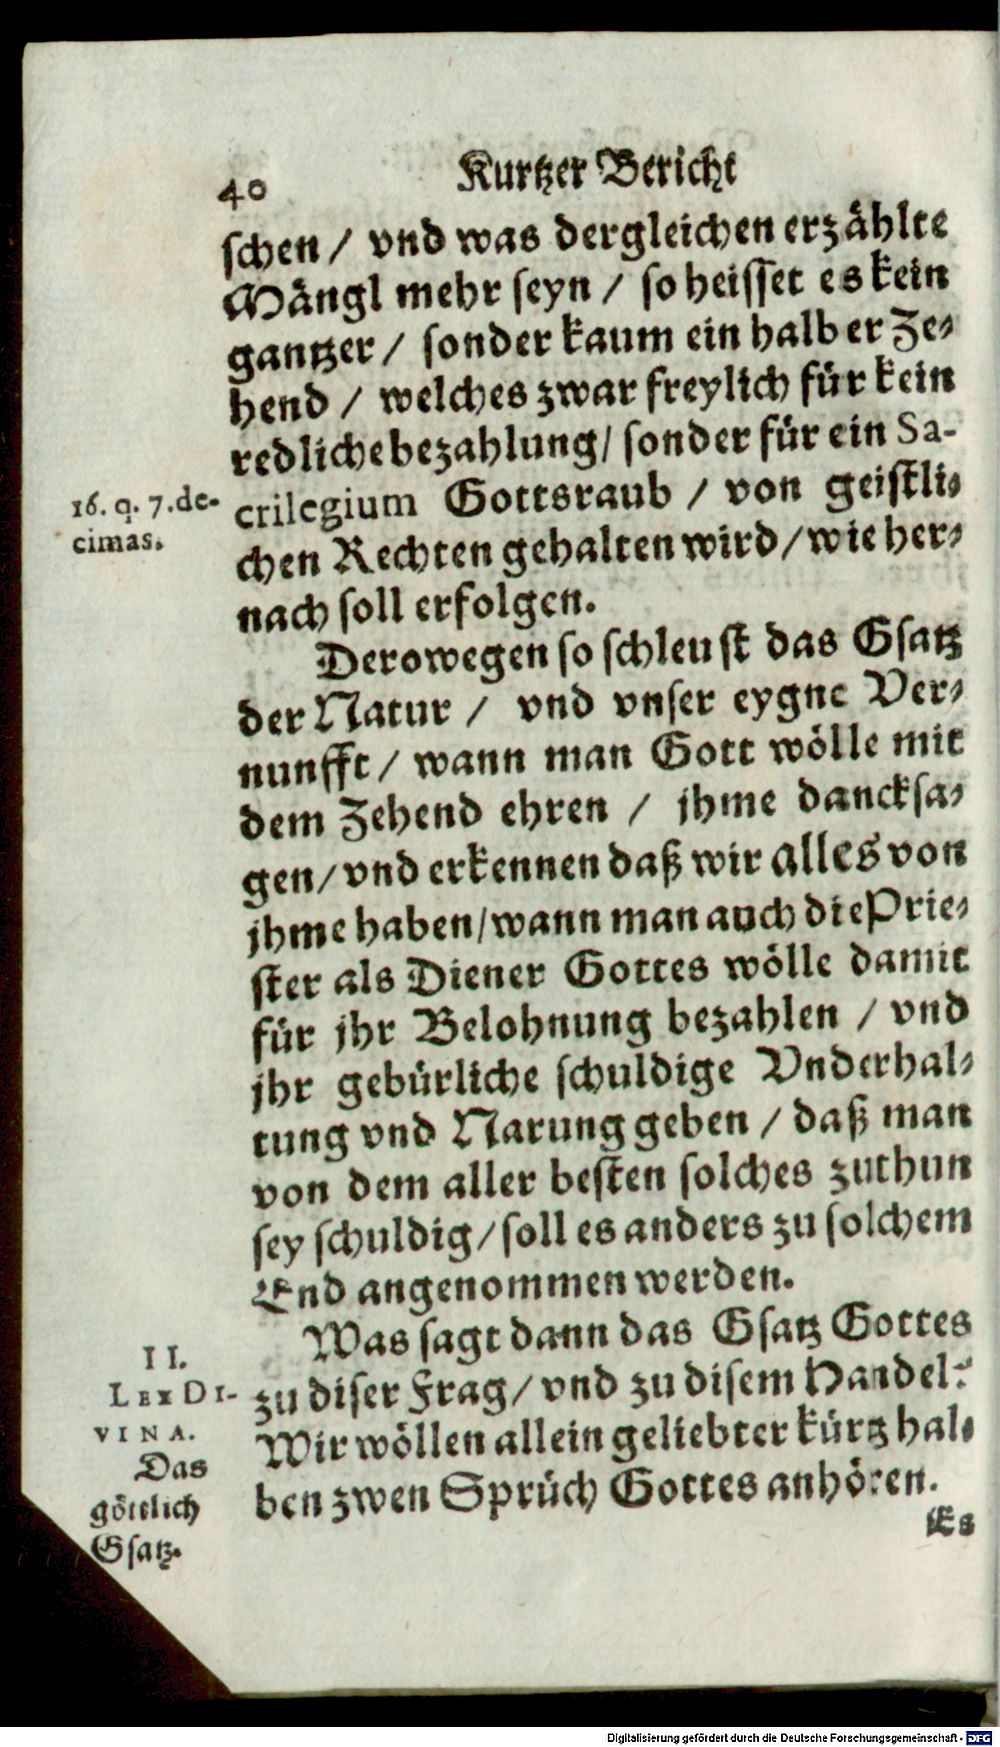 40 Kurtzer Bericht
schen / vnd was dergleichen erzählte
Mängl mehr seyn / so heisset es kein
gantzer / sonder kaum ein halber Ze-
hend / welches zwar freylich für kein
redliche bezahlung / sonder für ein Sa-
16. q. 7. de-
cimas.
crilegium Gottsraub / von geistli-
chen Rechten gehalten wird / wie her-
nach soll erfolgen.
Derowegen so schleust das Gsatz
der Natur / vnd vnser eygne Ver-
nunfft / wann man Gott wölle mit
dem Zehend ehren / jhme dancksa-
gen / vnd erkennen daß wir alles von
jhme haben / wann man auch die Prie-
ster als Diener Gottes wölle damit
für jhr Belohnung bezahlen / vnd
jhr gebürliche schuldige Vnderhal-
tung vnd Narung geben / daß man
von dem aller besten solches zuthun
sey schuldig / soll es anders zu solchem
End angenommen werden.
II.
LEX DI-
VINA.
Das
göttlich
Gsatz.
Was sagt dann das Gsatz Gottes
zu diser Frag / vnd zu disem Handel?
Wir wöllen allein geliebter kürtz hal-
ben zwen Sprüch Gottes anhören.
Es
Digitalisierung gefördert durch die Deutsche Forschungsgemeinschaft - DFG